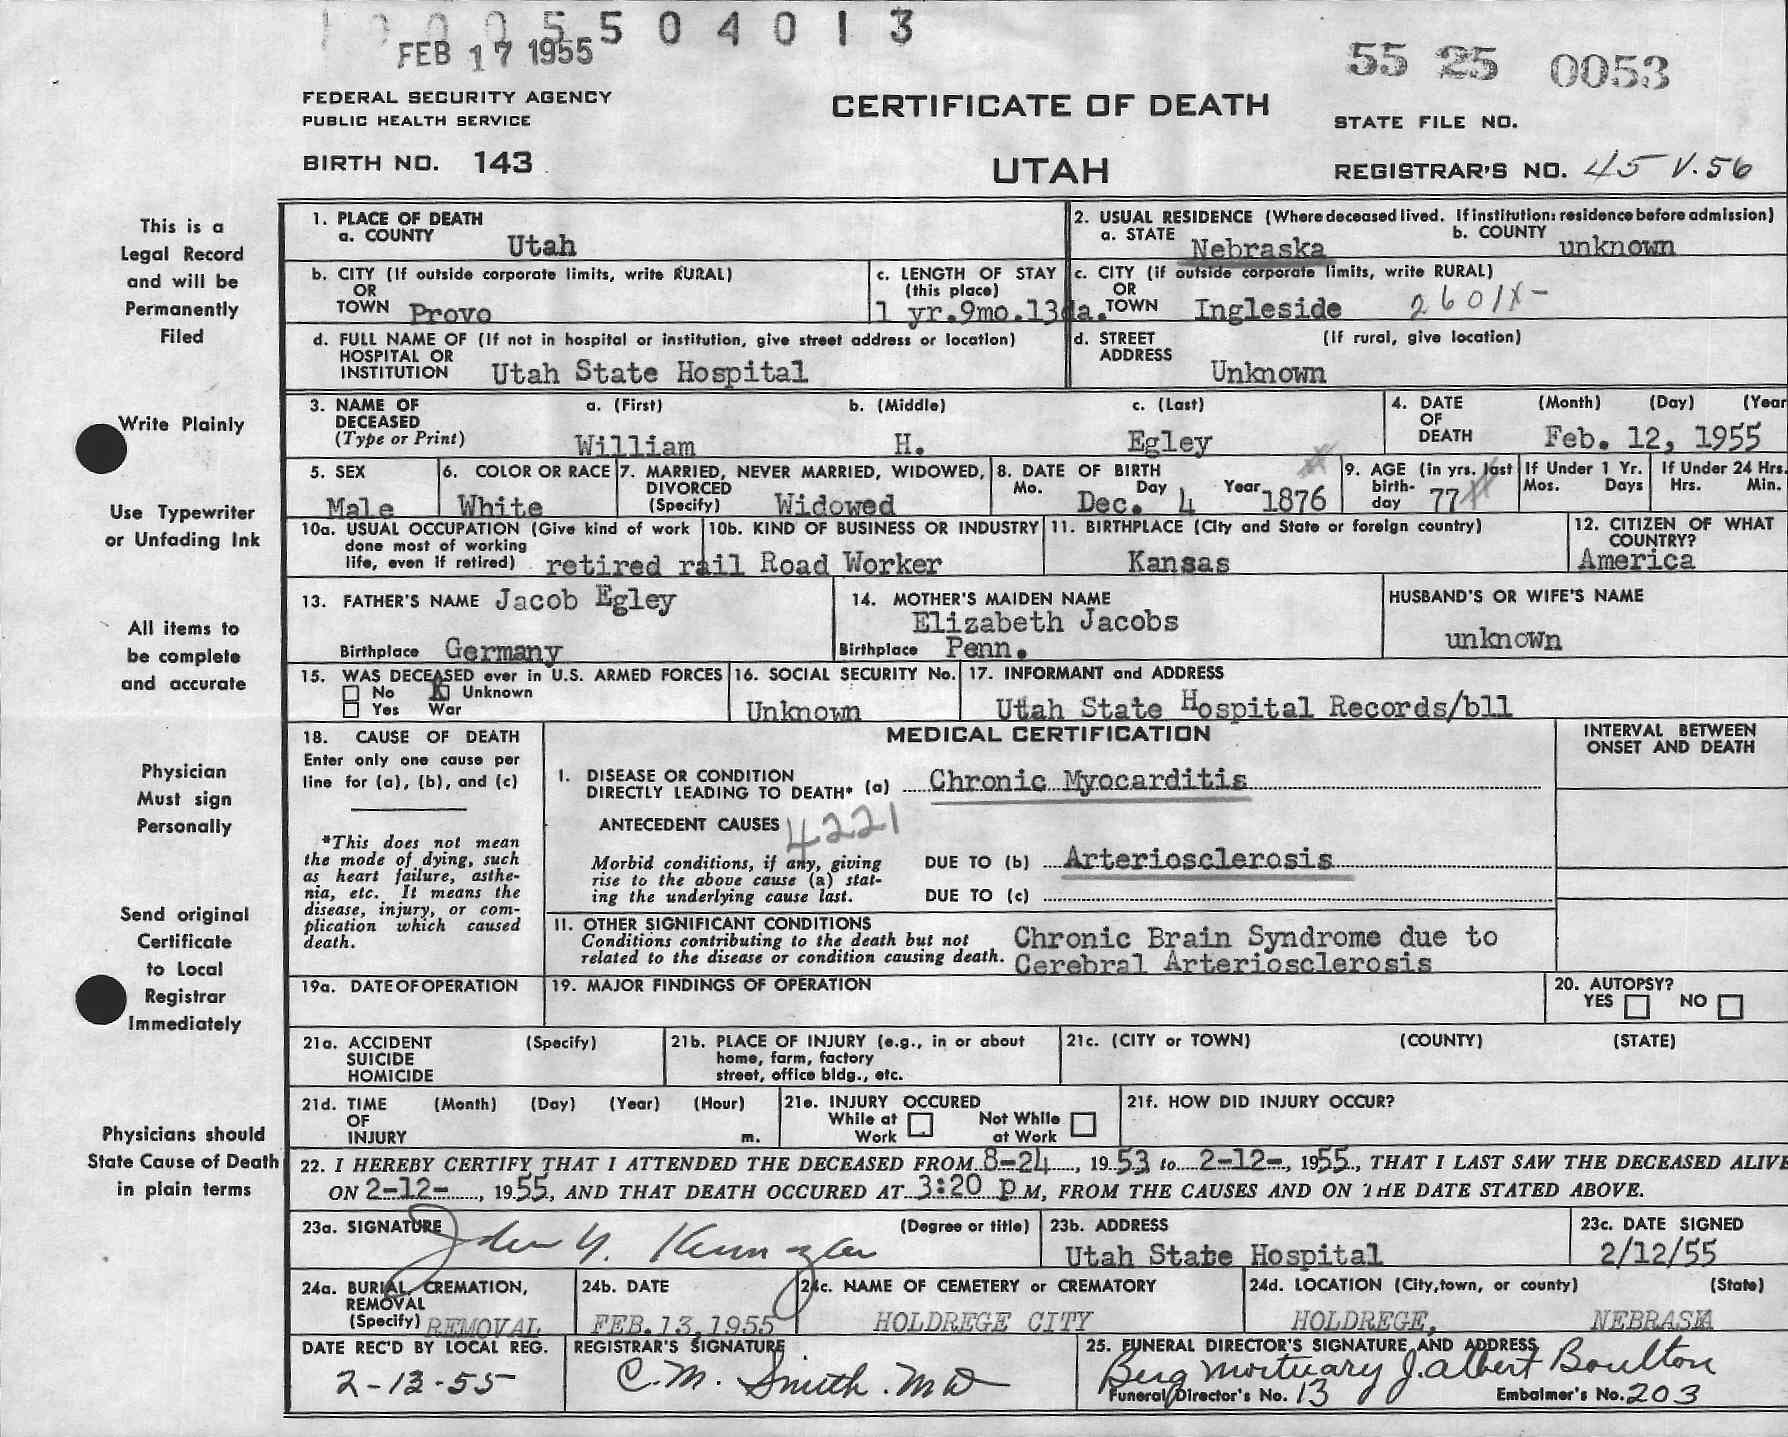 1 0 0 5 5 0 4 0 1 3
FEB 17 1955
55 25 0053
FEDERAL SECURITY AGENCY
PUBLIC HEALTH SERVICE
CERTIFICATE OF DEATH
STATE FILE NO.
BIRTH NO. 143
UTAH
REGISTRAR'S NO. 45 V.56
This is a
Legal Record
and will be
Permanently
Filed
Write Plainly
Use Typewriter
or Unfading Ink
All items to
be complete
and accurate
Physician
Must sign
Personally
Send original
Certificate
to Local
Registrar
Immediately
Physicians should
State Cause of Death
in plain terms
1. PLACE OF DEATH
a. COUNTY Utah
2. USUAL RESIDENCE (Where deceased lived. If institution: residence before admission)
a. STATE Nebraska b. COUNTY unknown
b. CITY (If outside corporate limits, write RURAL)
OR
TOWN Provo
c. LENGTH OF STAY
(this place)
1 yr.9mo.13da.
c. CITY (if outside corporate limits, write RURAL)
OR
TOWN Ingleside 2601X-
d. FULL NAME OF (If not in hospital or institution, give street address or location)
HOSPITAL OR
INSTITUTION Utah State Hospital
d. STREET (If rural, give location)
ADDRESS
Unknown
3. NAME OF a. (First) b. (Middle) c. (Last)
DECEASED
(Type or Print) William H. Egley
4. DATE (Month) (Day) (Year
OF
DEATH Feb. 12, 1955
5. SEX
Male
6. COLOR OR RACE
White
7. MARRIED, NEVER MARRIED, WIDOWED,
DIVORCED
(Specify) Widowed
8. DATE OF BIRTH
Mo. Day Year
Dec. 4 1876
9. AGE (in yrs. last
birth-
day 77
If Under 1 Yr.
Mos. Days
If Under 24 Hrs.
Hrs. Min.
10a. USUAL OCCUPATION (Give kind of work
done most of working
life, even if retired) retired rail Road Worker
10b. KIND OF BUSINESS OR INDUSTRY
11. BIRTHPLACE (City and State or foreign country)
Kansas
12. CITIZEN OF WHAT
COUNTRY?
America
13. FATHER'S NAME Jacob Egley
Birthplace Germany
14. MOTHER'S MAIDEN NAME
Elizabeth Jacobs
Birthplace Penn.
HUSBAND'S OR WIFE'S NAME
unknown
15. WAS DECEASED ever in U.S. ARMED FORCES
No X Unknown
Yes War
16. SOCIAL SECURITY No.
Unknown
17. INFORMANT and ADDRESS
Utah State Hospital Records/bll
18. CAUSE OF DEATH
Enter only one cause per
line for (a), (b), and (c)
*This does not mean
the mode of dying, such
as heart failure, asthe-
nia, etc. It means the
disease, injury, or com-
plication which caused
death.
MEDICAL CERTIFICATION
INTERVAL BETWEEN
ONSET AND DEATH
I. DISEASE OR CONDITION
DIRECTLY LEADING TO DEATH* (a) Chronic Myocarditis
ANTECEDENT CAUSES 4221
Morbid conditions, if any, giving
rise to the above cause (a) stat-
ing the underlying cause last.
DUE TO (b) Arteriosclerosis
DUE TO (c)
II. OTHER SIGNIFICANT CONDITIONS
Conditions contributing to the death but not
related to the disease or condition causing death.
Chronic Brain Syndrome due to
Cerebral Arteriosclerosis
19a. DATE OF OPERATION
19. MAJOR FINDINGS OF OPERATION
20. AUTOPSY?
YES NO
21a. ACCIDENT (Specify)
SUICIDE
HOMICIDE
21b. PLACE OF INJURY (e.g., in or about
home, farm, factory
street, office bldg., etc.
21c. (CITY or TOWN) (COUNTY) (STATE)
21d. TIME (Month) (Day) (Year) (Hour)
OF
INJURY m.
21e. INJURY OCCURED
While at Not While
Work at Work
21f. HOW DID INJURY OCCUR?
22. I HEREBY CERTIFY THAT I ATTENDED THE DECEASED FROM 8-24, 1953 to 2-12-, 1955, THAT I LAST SAW THE DECEASED ALIVE
ON 2-12-, 1955, AND THAT DEATH OCCURED AT 3:20 P M, FROM THE CAUSES AND ON THE DATE STATED ABOVE.
23a. SIGNATURE (Degree or title)
23b. ADDRESS
Utah State Hospital
23c. DATE SIGNED
2/12/55
24a. BURIAL, CREMATION,
REMOVAL
(Specify) REMOVAL
24b. DATE
FEB.13,1955
24c. NAME OF CEMETERY or CREMATORY
HOLDREGE CITY
24d. LOCATION (City,town, or county) (State)
HOLDREGE, NEBRASKA
DATE REC'D BY LOCAL REG.
2-13-55
REGISTRAR'S SIGNATURE
C.M. Smith. MD
25. FUNERAL DIRECTOR'S SIGNATURE AND ADDRESS
Berg Mortuary J. Albert Boulton
Funeral Director's No. 13 Embalmer's No. 203